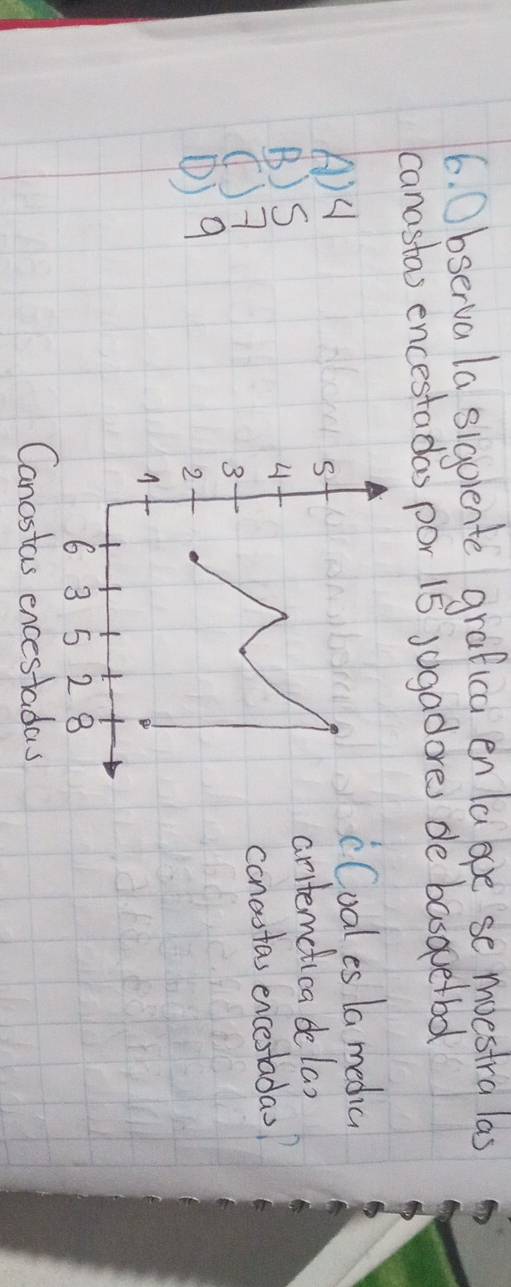 6. Observa la siguiente grafica en la que se muestra las
canastas encestadas por 15 jugadores de básquetbol
A) 4
B) 5
C) 7
D) 9
5
4
3
2
1
6 3 5 2 8
Canastas encestadas
¿Cual es la media
aritemetica de las
canastas encestadas?